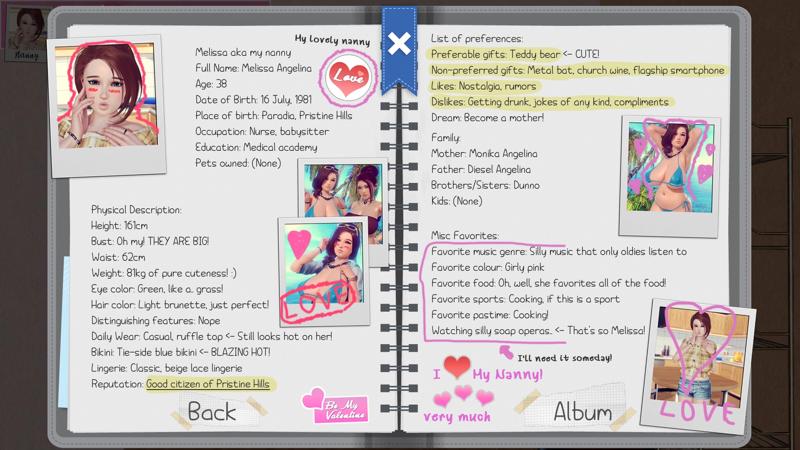 Nanny
My lovely nanny
Melissa aka my nanny
Full Name: Melissa Angelina
Age: 38
Date of Birth: 16 July, 1981
Place of birth: Paradia, Pristine Hills
Occupation: Nurse, babysitter
Education: Medical academy
Pets owned: (None)
Love
Physical Description:
Height: 161cm
Bust: Oh my! THEY ARE BIG!
Waist: 62cm
Weight: 81kg of pure cuteness! :)
Eye color: Green, like a.. grass!
Hair color: Light brunette, just perfect!
Distinguishing features: Nope
Daily Wear: Casual, ruffle top <- Still looks hot on her!
Bikini: Tie-side blue bikini <- BLAZING HOT!
Lingerie: Classic, beige lace lingerie
Reputation: Good citizen of Pristine Hills
LOVE
Back
Be My
Valentine
List of preferences:
Preferable gifts: Teddy bear <- CUTE!
Non-preferred gifts: Metal bat, church wine, flagship smartphone
Likes: Nostalgia, rumors
Dislikes: Getting drunk, jokes of any kind, compliments
Dream: Become a mother!
Family:
Mother: Monika Angelina
Father: Diesel Angelina
Brothers/Sisters: Dunno
Kids: (None)
Misc Favorites:
Favorite music genre: Silly music that only oldies listen to
Favorite colour: Girly pink
Favorite food: Oh, well, she favorites all of the food!
Favorite sports: Cooking, if this is a sport
Favorite pastime: Cooking!
Watching silly soap operas.. <- That's so Melissa!
I'll need it someday!
I My Nanny!
very much
Album
LOVE